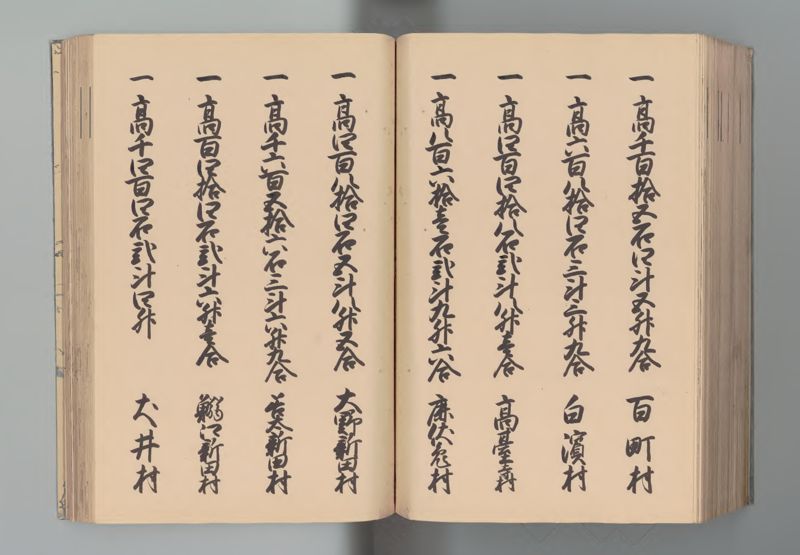 一 高千百拾五石四斗五升九合 百町村
一 高六百八拾四石三斗三升九合 白濱村
一 高四百四拾八石弐斗八升壱合 高臺村
一 高八百六拾壱石弐斗九升六合 麻伏免村
一 高四百八拾四石五斗八升五合 大野新田村
一 高千六百五拾六石三斗六升九合 新田村
一 高百四拾四石弐斗六升壱合 新田村
一 高千四百四石弐斗四升 大井村